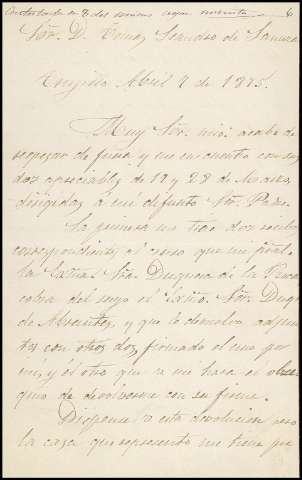 Contestada en 8 del mismo segun minuta
Sr. D. Tomas Leandro de
Trujillo Abril 2 de 1875.
Muy Sr. mio: acabo de
regresar de fuera y me encuentro con sus
dos apreciables de 19 y 28 de Marzo,
dirigidas a mi difunto Sr. Padre.
La primera me trae dos recibos
correspondientes al censo que
la Exma. Sra. Duquesa de la Roca
cobra del suyo el Exmo. Sr. Duque
de Abrantes, y que le devuelvo adjun-
tos con otros dos, firmado el uno por
mi, y el otro que se me hara el obse-
quio de devolverme con su firma.
Dispense V. esta devolucion pero
la casa que represento me tiene